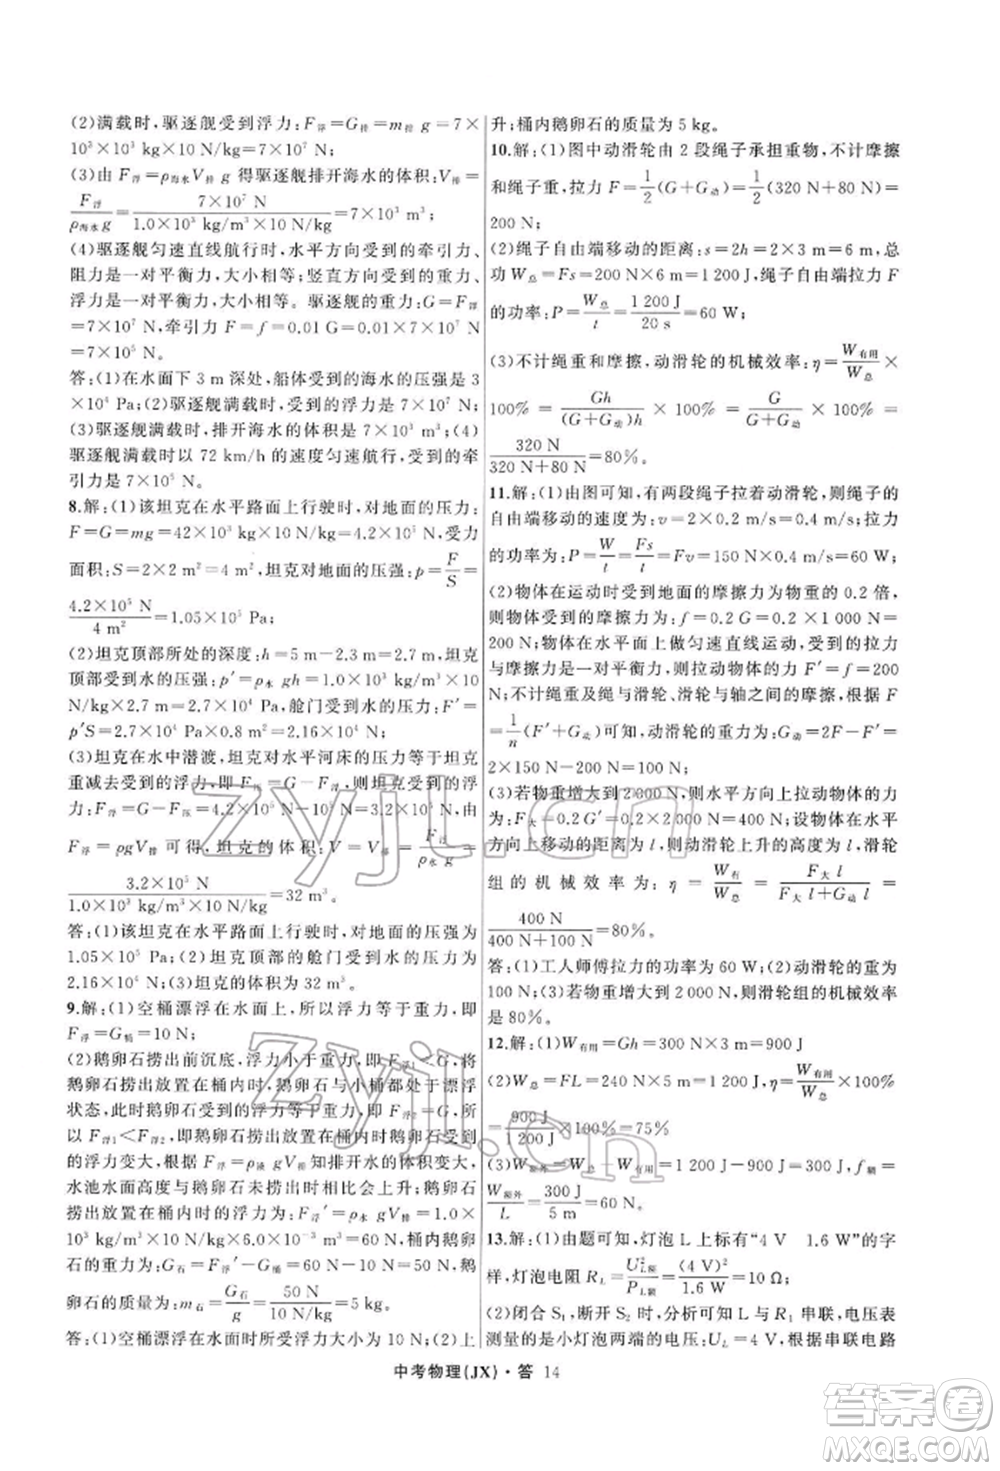 (2)满载时,驱逐舰受到浮力:F浮=G排=m排 g=7×
10³×10³ kg×10 N/kg=7×10⁷ N;
(3)由 F浮=ρ海水V排 g 得驱逐舰排开海水的体积:V排=
F浮/ρ海水 g=7×10⁷ N/1.0×10³ kg/m³×10 N/kg=7×10³ m³;
(4)驱逐舰匀速直线航行时,水平方向受到的牵引力、
阻力是一对平衡力,大小相等;竖直方向受到的重力、
浮力是一对平衡力,大小相等。驱逐舰的重力:G=F浮
=7×10⁷ N,牵引力 F=f=0.01 G=0.01×7×10⁷ N=
7×10⁵ N。
答:(1)在水面下 3 m 深处,船体受到的海水的压强是 3×
10⁴ Pa;(2)驱逐舰满载时,受到的浮力是 7×10⁷ N;
(3)驱逐舰满载时,排开海水的体积是 7×10³ m³;(4)
驱逐舰满载时以 72 km/h 的速度匀速航行,受到的牵
引力是 7×10⁵ N。
8.解:(1)该坦克在水平路面上行驶时,对地面的压力:
F=G=mg=42×10³ kg×10 N/kg=4.2×10⁵ N,受力
面积:S=2×2 m²=4 m²,坦克对地面的压强:p=F/S=
4.2×10⁵ N/4 m²=1.05×10⁵ Pa;
(2)坦克顶部所处的深度:h=5 m-2.3 m=2.7 m,坦克
顶部受到水的压强:p′=ρ水 gh=1.0×10³ kg/m³×10
N/kg×2.7 m=2.7×10⁴ Pa,舱门受到水的压力:F′=
p′S=2.7×10⁴ Pa×0.8 m²=2.16×10⁴ N;
(3)坦克在水中潜渡,坦克对水平河床的压力等于坦克
重减去受到的浮力,即 F压=G-F浮,坦克受到的浮
力:F浮=G-F压=4.2×10⁵ N-1×10⁵ N=3.2×10⁵ N,由
F浮=ρgV排可得,坦克的体积:V=V排=F浮/ρ水 g=
3.2×10⁵ N/1.0×10³ kg/m³×10 N/kg=32 m³。
答:(1)该坦克在水平路面上行驶时,对地面的压强为
1.05×10⁵ Pa;(2)坦克顶部的舱门受到水的压力为
2.16×10⁴ N;(3)坦克的体积为 32 m³。
9.解:(1)空桶漂浮在水面上,所以浮力等于重力,即
F浮=G桶=10 N;
(2)鹅卵石捞出前沉底,浮力小于重力,即 F浮1<G,将
鹅卵石捞出放置在桶内时,鹅卵石与小桶都处于漂浮
状态,此时鹅卵石受到的浮力等于重力,即 F浮2=G,所
以 F浮1<F浮2,即鹅卵石捞出放置在桶内时鹅卵石受到
的浮力变大,根据 F浮=ρ液 gV排 知排开水的体积变大,
水池水面高度与鹅卵石未捞出时相比会上升;鹅卵石
捞出放置在桶内时,总浮力 F浮′=ρ水 gV排=1.0×
10³ kg/m³×10 N/kg×6.0×10⁻³ m³=60 N,桶内鹅卵
石的重力:G石=F浮′-G桶=60 N-10 N=50 N,桶内鹅
卵石的质量为:m石=G石/g=50 N/10 N/kg=5 kg。
答:(1)空桶漂浮在水面时所受浮力大小为 10 N;(2)上
升;桶内鹅卵石的质量为 5 kg。
10.解:(1)图中动滑轮由 2 段绳子承担重物,不计摩擦
和绳子重,拉力 F=1/2(G+G动)=1/2(320 N+80 N)=
200 N;
(2)绳子自由端移动的距离:s=2h=2×3 m=6 m,总
功 W总=Fs=200 N×6 m=1 200 J,绳子自由端拉力 F
的功率:P=W总/t=1 200 J/20 s=60 W;
(3)不计绳重和摩擦,动滑轮的机械效率:η=W有用/W总×
100%=Gh/(G+G动)h×100%=G/G+G动×100%=
320 N/320 N+80 N=80%。
11.解:(1)由图可知,有两段绳子拉着动滑轮,则绳子的
自由端移动的速度为:v=2×0.2 m/s=0.4 m/s;拉力
的功率为:P=W/t=Fs/t=Fv=150 N×0.4 m/s=60 W;
(2)物体在运动时受到地面的摩擦力为物重的 0.2 倍,
则物体受到的摩擦力为:f=0.2 G=0.2×1 000 N=
200 N;物体在水平面上做匀速直线运动,受到的拉力
与摩擦力是一对平衡力,则拉动物体的力 F′=f=200
N;不计绳重及绳与滑轮、滑轮与轴之间的摩擦,根据 F
=1/n(F′+G动)可知,动滑轮的重力为:G动=2F-F′=
2×150 N-200 N=100 N;
(3)若物重增大到 2 000 N,则水平方向上拉动物体的力
为:F大=0.2 G′=0.2×2 000 N=400 N;设物体在水平
方向上移动的距离为 l,则动滑轮上升的高度为 l,滑轮
组的机械效率为:η=W有/W总=F大 l/F大 l+G动 l=
400 N/400 N+100 N=80%。
答:(1)工人师傅拉力的功率为 60 W;(2)动滑轮的重为
100 N;(3)若物重增大到 2 000 N,则滑轮组的机械效率
是 80%。
12.解:(1)W有用=Gh=300 N×3 m=900 J
(2)W总=FL=240 N×5 m=1 200 J,η=W有用/W总×100%
=900 J/1 200 J×100%=75%
(3)W额外=W总-W有用=1 200 J-900 J=300 J,f=
W额外/L=300 J/5 m=60 N。
13.解:(1)由题可知,灯泡 L 上标有“4 V 1.6 W”的字
样,灯泡电阻 RL=U²L额/PL额=(4 V)²/1.6 W=10 Ω;
(2)闭合 S₁,断开 S₂ 时,分析可知 L 与 R₁ 串联,电压表
测量的是小灯泡两端的电压:UL=4 V,根据串联电路
中考物理(JX)·答 14
zyjl.cn
zyjl.cn
答案圈
MXQE.COM